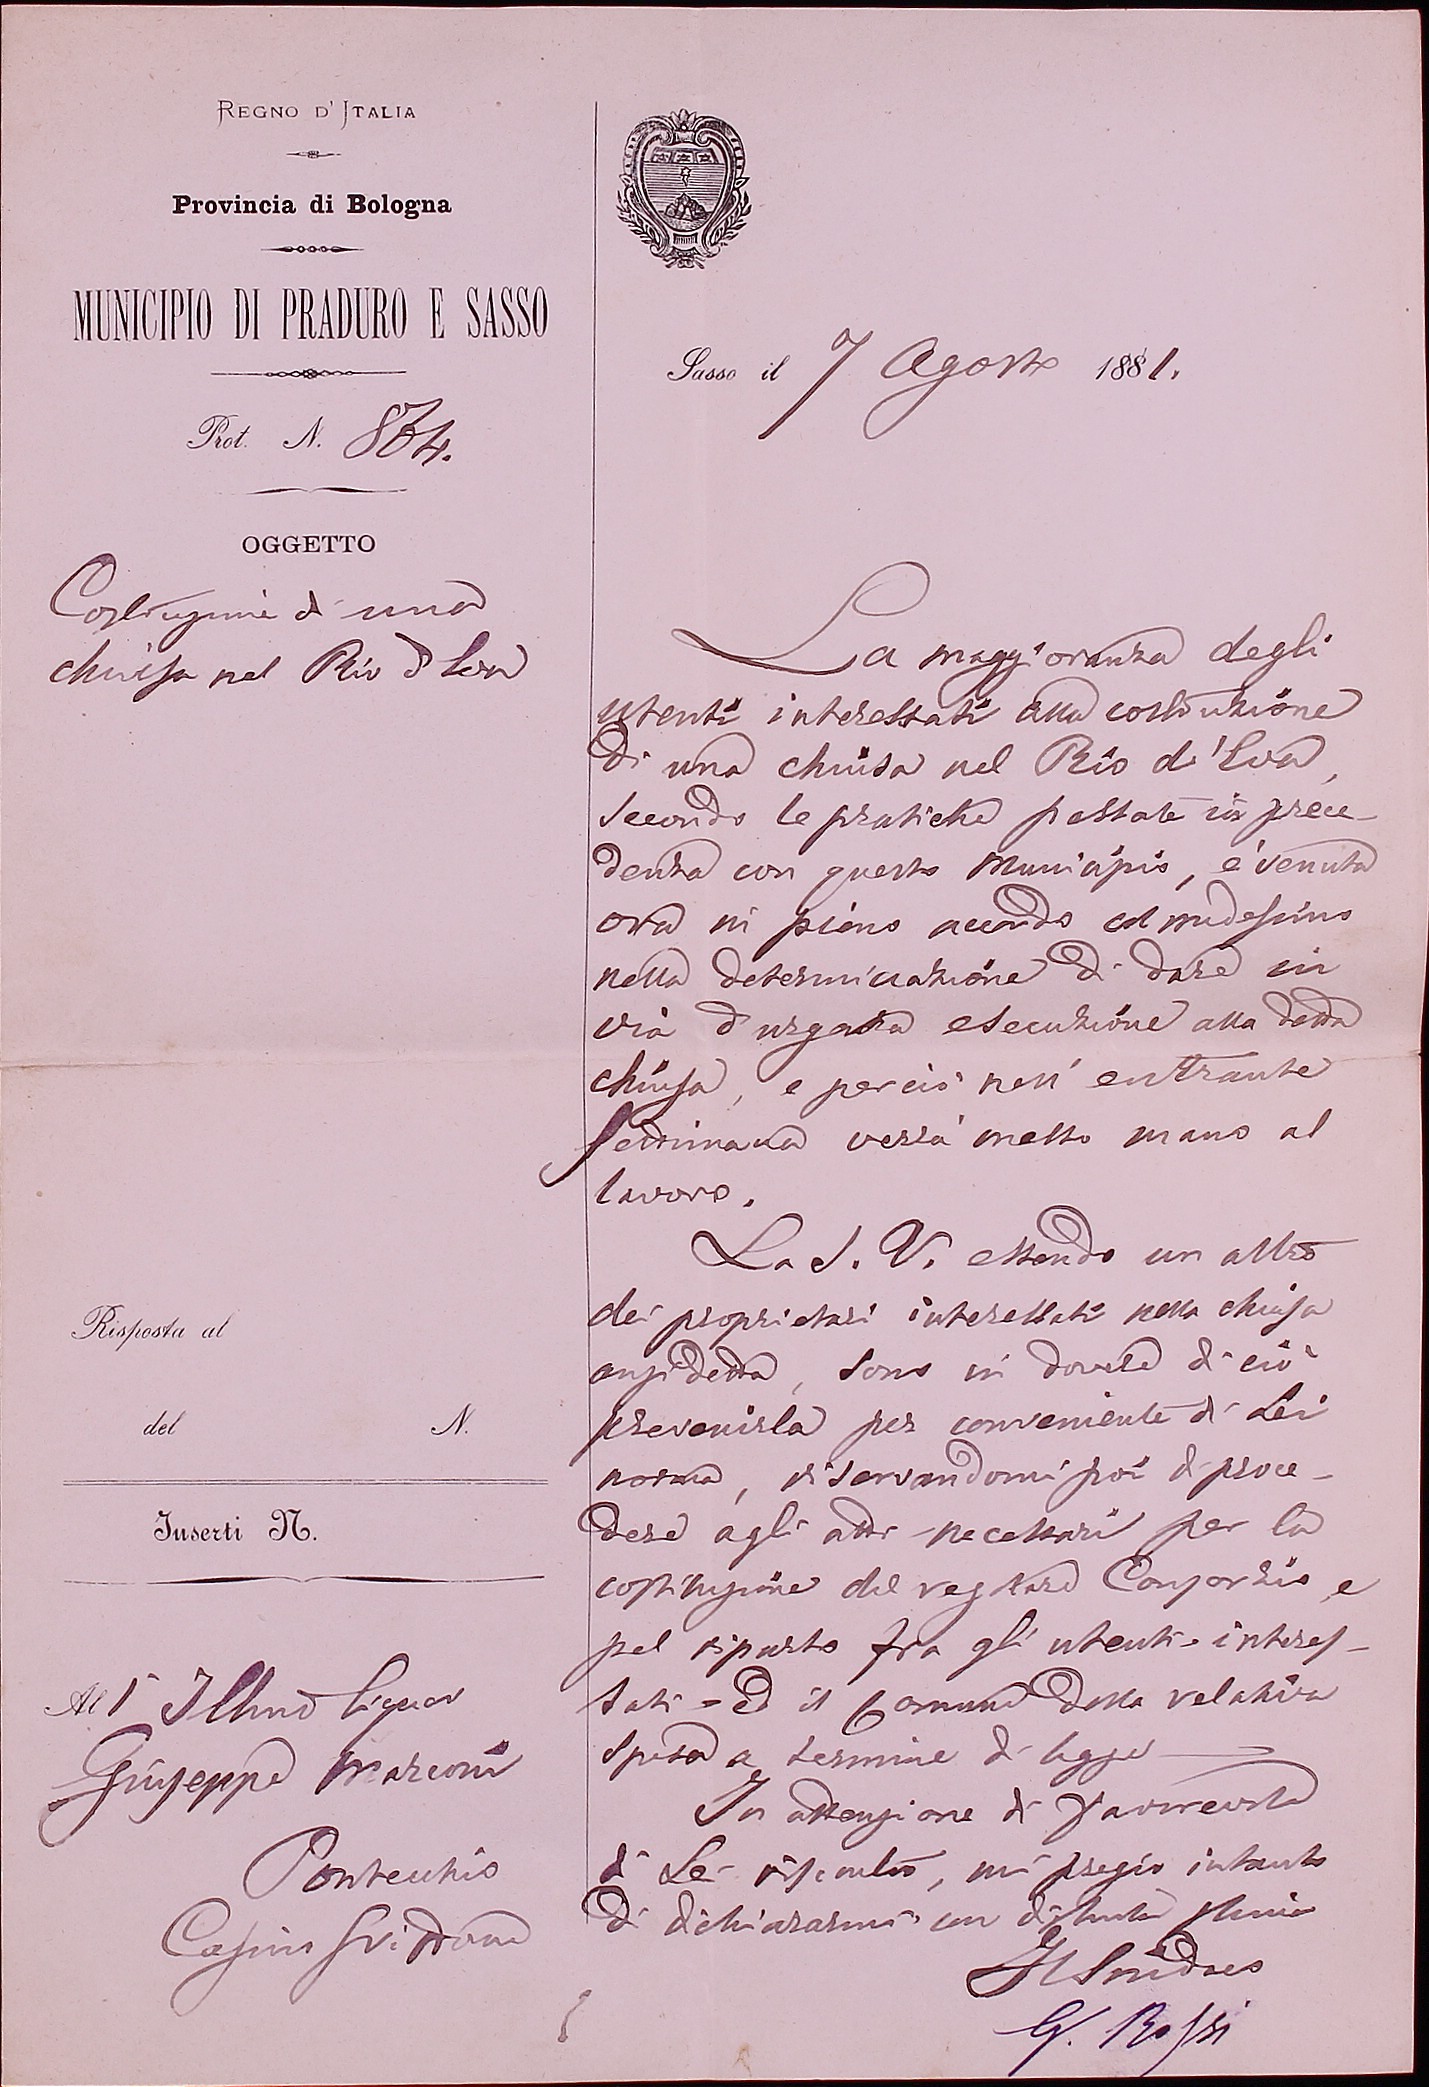 REGNO D'ITALIA
Provincia di Bologna
MUNICIPIO DI PRADURO E SASSO
Prot. N. 834.
OGGETTO
Costruzione di una
chiusa nel Rio d'Eva
Sasso il 7 Agosto 1881.
La maggioranza degli
utenti interessati alla costruzione
di una chiusa nel Rio d'Eva,
secondo le pratiche passate in prece-
denza con questo Municipio, è venuta
ora in pieno accordo col medesimo
nella determinazione di dare in
via d'urgenza esecuzione alla detta
chiusa, e perciò nell'entrante
settimana verrà messo mano al
lavoro.
La S. V. essendo un altro
dei proprietari interessati nella chiusa
anzidetta, sono in dovere di ciò
prevenirla per conveniente di Lei
norma, riservandomi poi di proce-
dere agli atti necessari per la
costituzione del regolare Consorzio, e
pel riparto fra gli utenti interes-
sati ed il Comune della relativa
spesa a termine di legge
In attenzione di favorevole
di Lei riscontro, mi pregio intanto
di dichiararmi con distinta stima
Il Sindaco
G. Rossi
Risposta al
del N.
Inserti N.
All' Illmo Signor
Giuseppe Marconi
Pontecchio
Casino Grifone